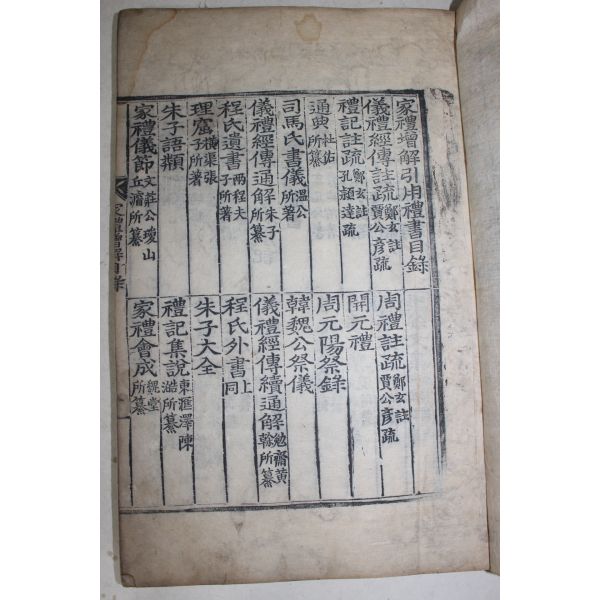 家禮增解引用禮書目錄
儀禮經傳註疏 鄭玄註賈公彥疏 周禮註疏 鄭玄註賈公彥疏
禮記註疏 鄭玄註孔穎達疏 開元禮
通典 杜佑所纂 周元陽祭錄
司馬氏書儀 溫公所著 韓魏公祭儀
儀禮經傳通解 朱子所纂 儀禮經傳續通解 勉齋黃榦所纂
程氏遺書 兩程夫子所著 程氏外書 上同
理窟 橫渠張子所著 朱子大全
朱子語類 禮記集說 東滙澤陳澔所纂
家禮儀節 文莊公瓊山丘濬所纂 家禮會成 魏堂所纂
家禮增解目錄